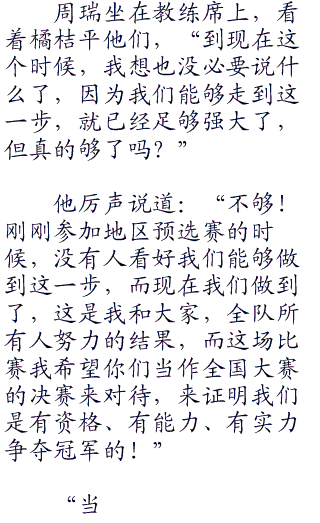 周瑞坐在教练席上，看
着橘桔平他们，“到现在这
个时候，我想也没必要说什
么了，因为我们能够走到这
一步，就已经足够强大了，
但真的够了吗？”
他厉声说道：“不够！
刚刚参加地区预选赛的时
候，没有人看好我们能够做
到这一步，而现在我们做到
了，这是我和大家，全队所
有人努力的结果，而这场比
赛我希望你们当作全国大赛
的决赛来对待，来证明我们
是有资格、有能力、有实力
争夺冠军的！”
“当